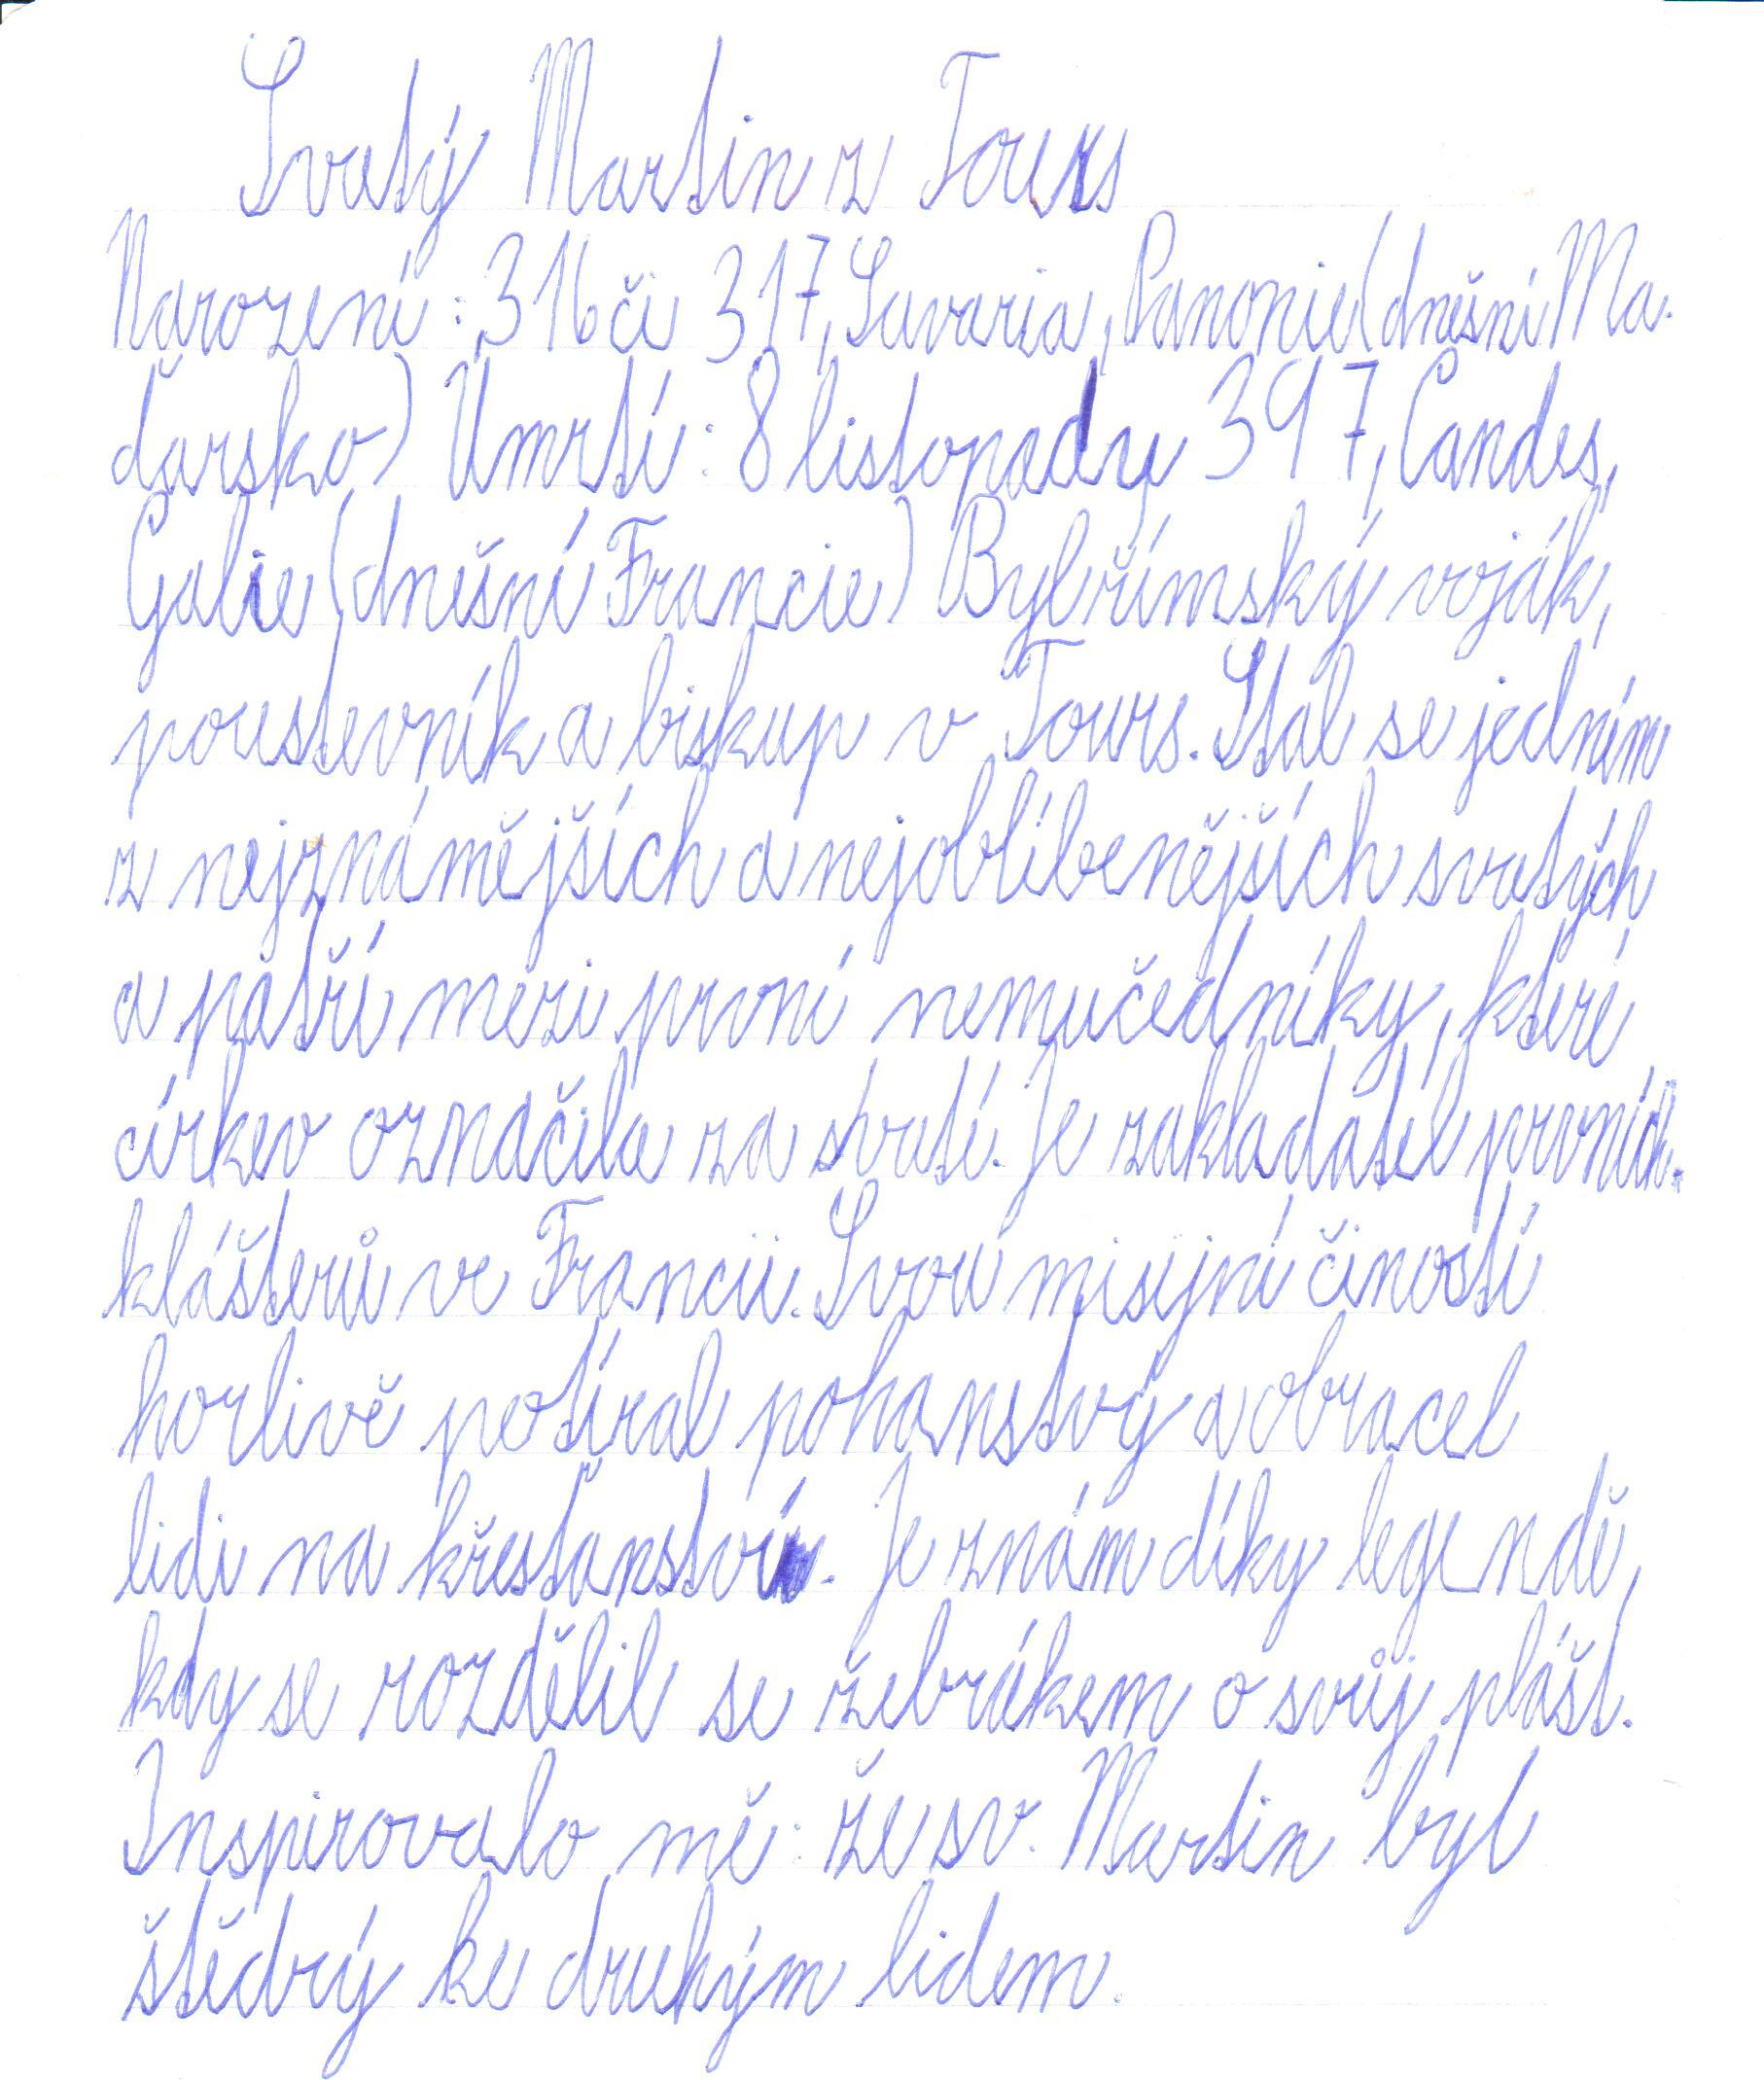 Svatý Martin z Tours
Narození: 316 či 317, Savaria, Panonie (dnešní Ma-
ďarsko) Úmrtí: 8 listopadu 397, Candes,
Galie (dnešní Francie) Byl římský voják,
poustevník a biskup v Tours. Stal se jedním
z nejznámějších a nejoblíbenějších svatých
a patří mezi první nemučedníky, které
církev označila za svaté. Je zakladatel prvních
klášterů ve Francii. Svou misijní čiností
horlivě potíral pohanstvý a obracel
lidi na křesťanství. Je znám díky legendě,
kdy se rozdělil se žebrákem o svůj plášť.
Inspirovalo mě: že sv. Martin byl
štědrý ke druhým lidem.